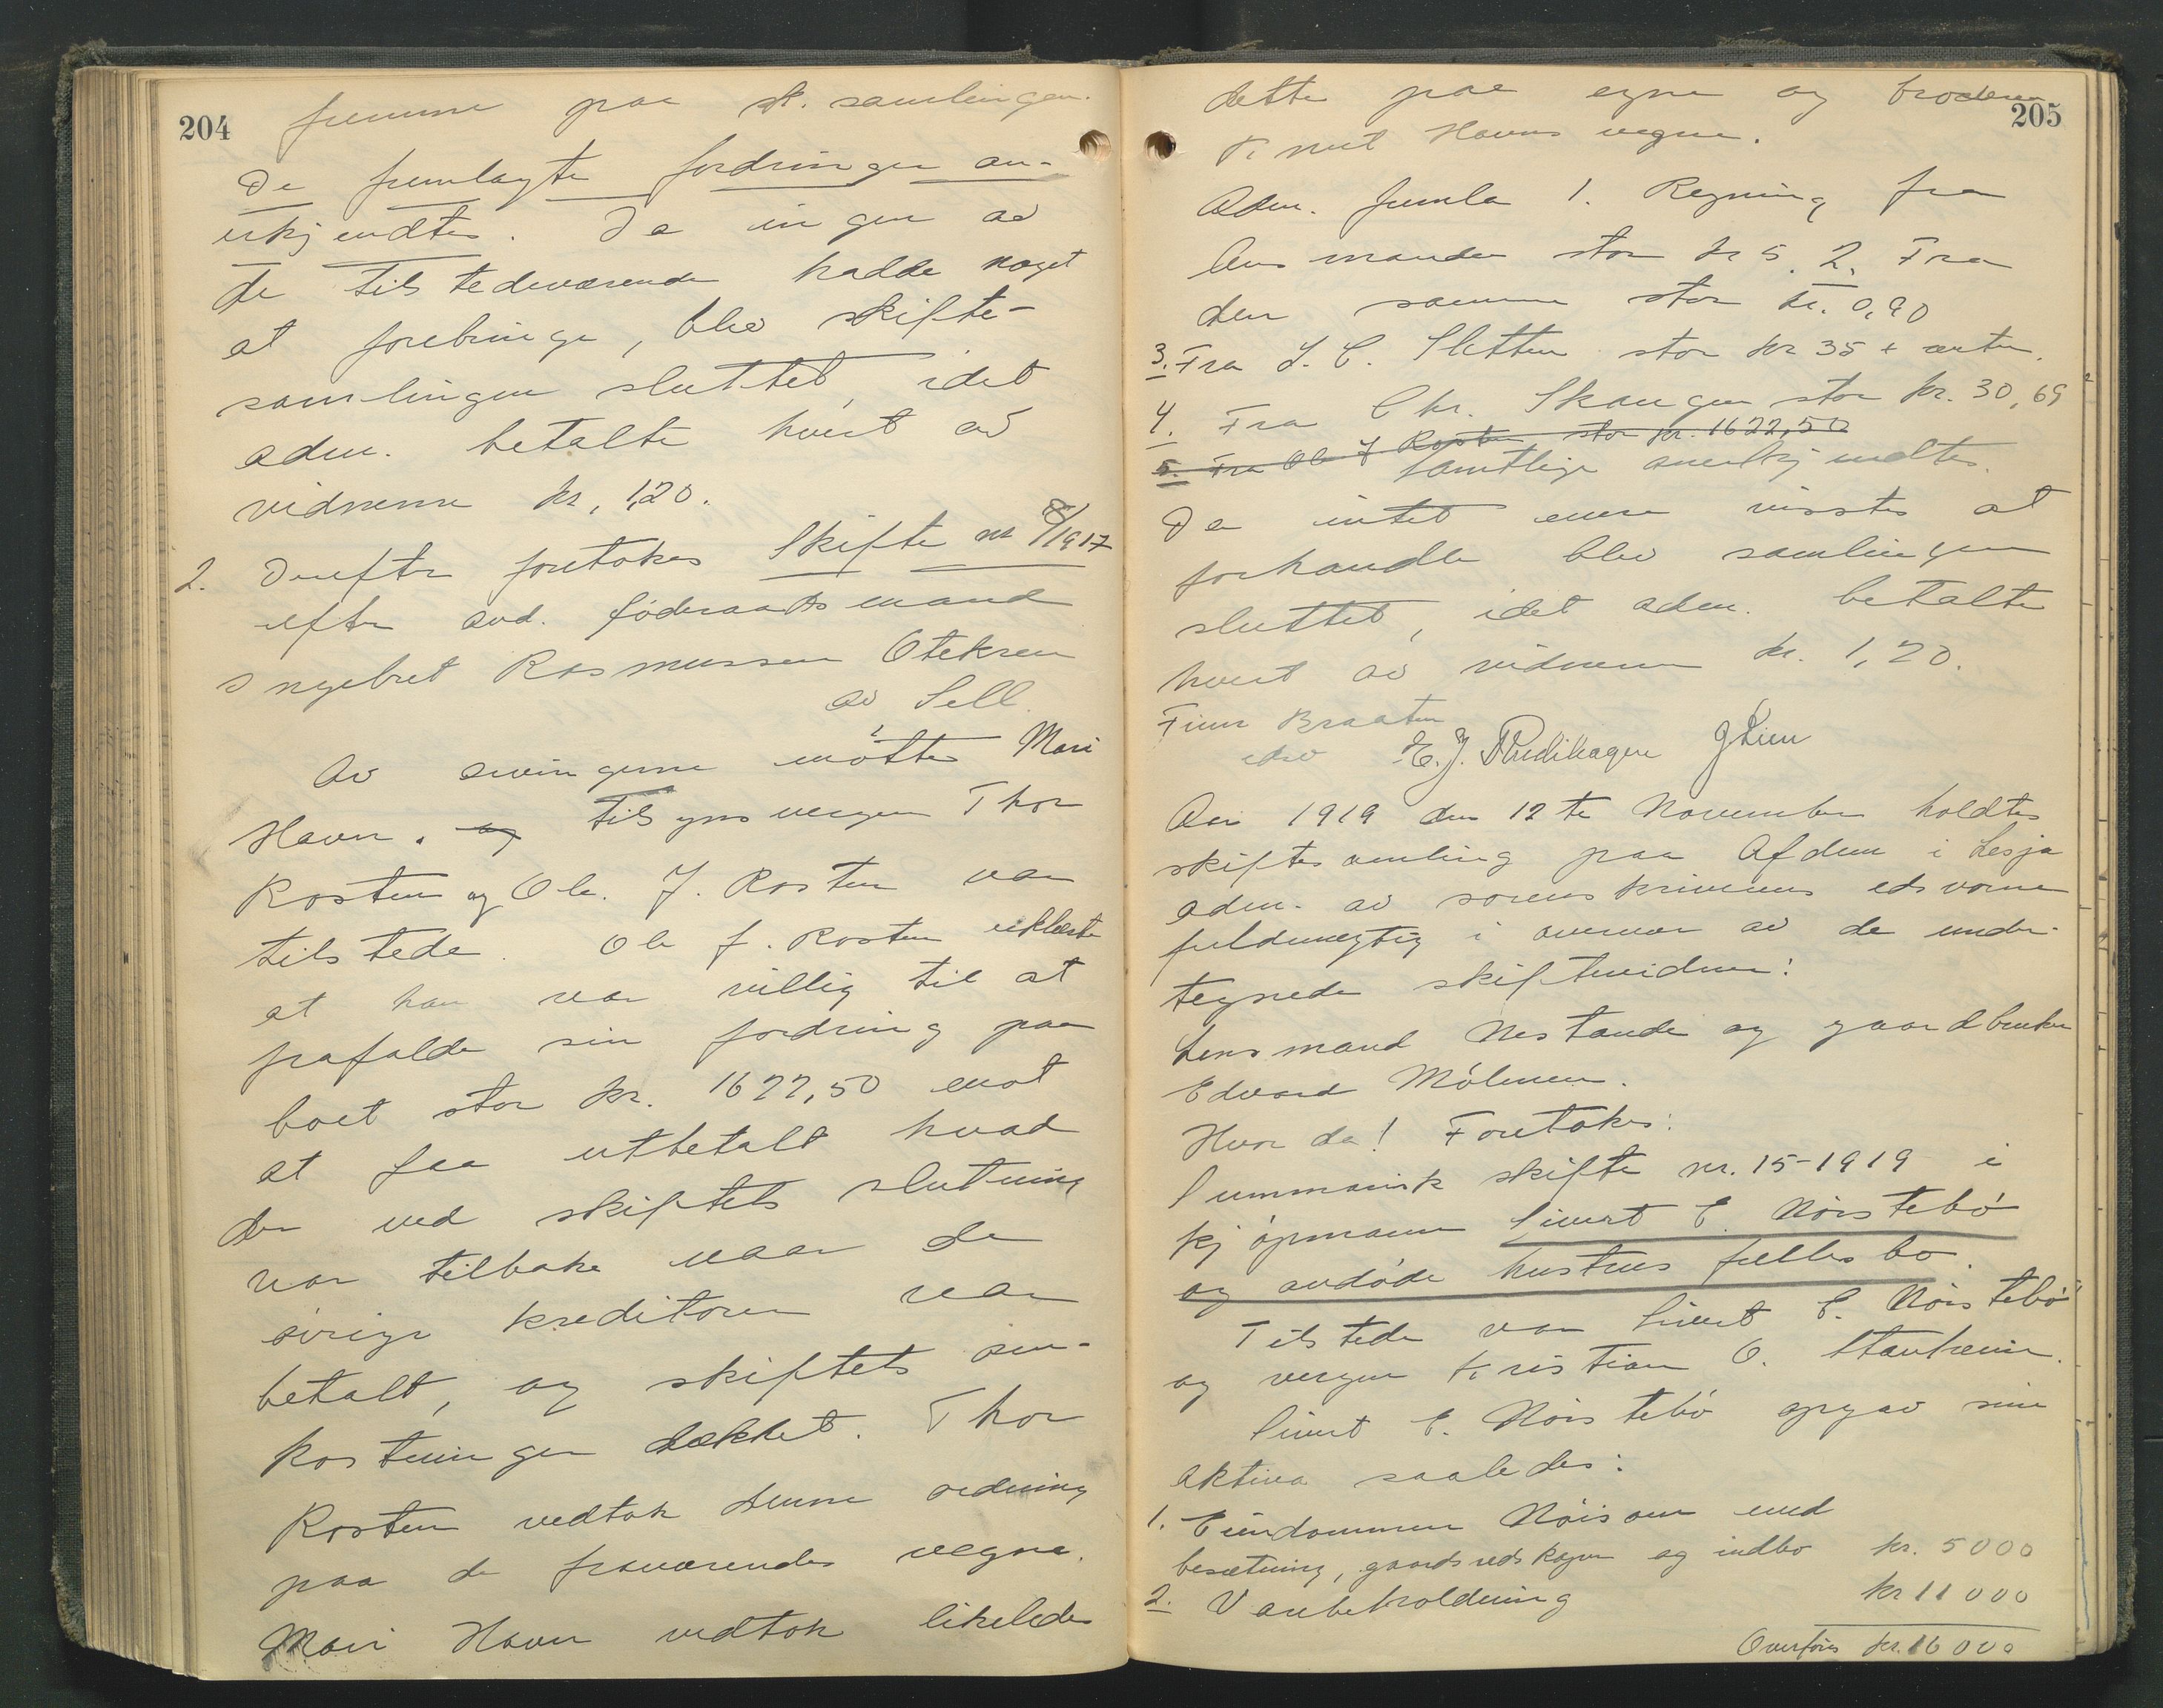 204
fremme paa sk. samlingen.
De fremlagte fordringer an-
erkjendtes. Da ingen av
de tilstedeværende hadde noget
at forebringe, blev skifte-
samlingen sluttet, idet
adm. betalte hvert av
vidnerne kr. 1,20.
2. Derefter foretokes Skifte nr 8/1917
efter avd. föderaadsmand
Ingebret Rasmussen Otekren
av Sell.
Av arvingerne mötte Mari
Haven. og tilsynsvergen Thor
Rosten og Ole J. Rosten var
tilstede. Ole J. Rosten erklærte
at han var villig til at
frafalde sin fordring paa
boet stor kr. 1622,50 mot
at faa utbetalt hvad
der ved skiftets slutning
var tilbake naar de
övrige kreditorer var
betalt, og skiftets om-
kostninger dækket. Thor
Rosten vedtok denne ordning
paa de fraværendes vegne.
Mari Haven vedtok likeledes
205
dette paa egne og broderen
Knut Havens vegne.
Adm. fremla 1. Regning fra
lensmanden stor kr 5. 2. Fra
den samme stor kr. 0,90
3. Fra J. C. Sletten stor kr 35 + renter.
4. Fra Chr. Skaugen stor kr. 30,69
5. Fra Ole J Rosten stor kr. 1622,50
Samtlige anerkjendtes.
Da intet mere visstes at
forhandle blev samlingen
sluttet, idet adm. betalte
hvert av vidnerne kr. 1,20.
Finn Braaten
edsv E. J. Thedihagen J Lien
Aar 1919 den 12te November holdtes
skiftesamling paa Afdem i Lesja
adm. av sorenskriverens edsvorne
fuldmægtig i overvær av de under-
tegnede skiftevidner:
Lensmand Nestande og gaardbruker
Edvard Mölmen.
Hvor da! Foretokes:
Summarisk skifte nr. 15-1919 i
kjöpmann Sivert E. Nörstebö
og avdöde hustrus fælles bo.
Tilstede var Sivert E. Nörstebö
og vergen Kristian O. Stavheim.
Sivert E. Nörstebö opgav sin
aktiva saaledes:
1. Eiendommen Nöisom med
besætning, gaardsredskaper og indbo kr. 5000
2. Varebeholdning kr 11000
Overföres kr. 16000